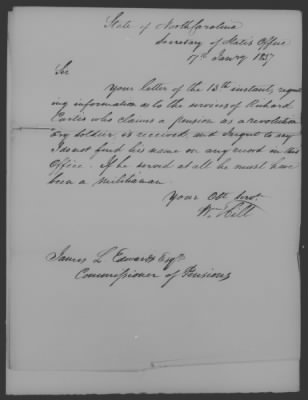 State of North Carolina
Secretary of State's Office
17th Janry 1837
Sir
Your letter of the 13th instant, request
ing information as to the services of Richard
Curtis who claims a pension as a revolution
ary soldier, is received, and I regret to say
I do not find his name on any record in this
Office. If he served at all he must have
been a militiaman.
Your Obt. Servt.
Wm Hill
James L Edwards Esqr
Commissioner of Pensions